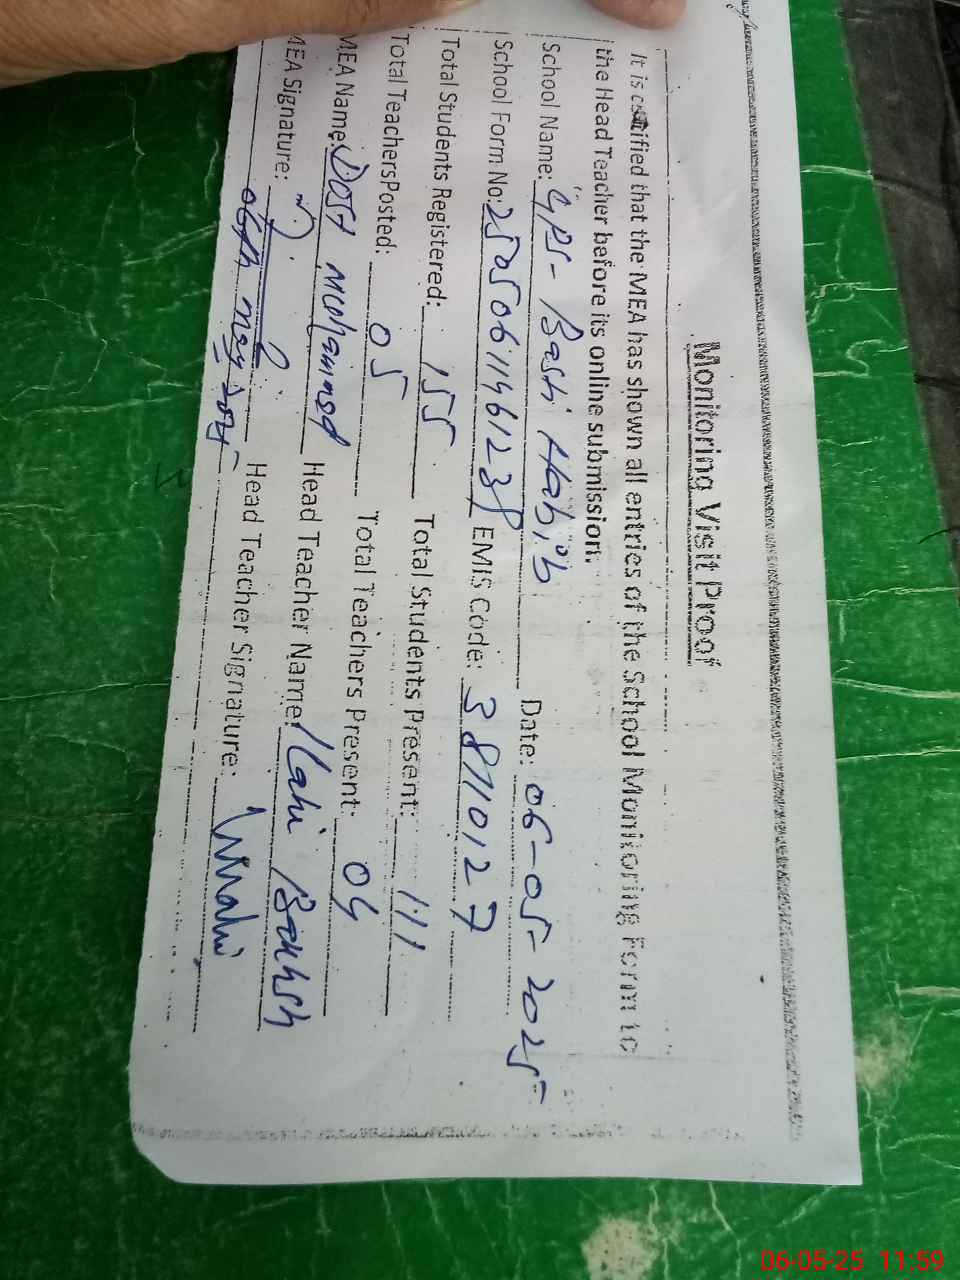 Monitoring Visit Proof
It is certified that the MEA has shown all entries of the School Monitoring Form to
the Head Teacher before its online submission.
School Name: GPS- Bash Habib Date: 06-05-2025
School Form No: EMIS Code: 38710127
Total Students Registered: 155 Total Students Present: 111
Total TeachersPosted: 05 Total Teachers Present: 04
MEA Name: Dost Mohammed Head Teacher Name: Ilahi Bakhsh
MEA Signature: Head Teacher Signature:
06th may 2025
06-05-25 11:59